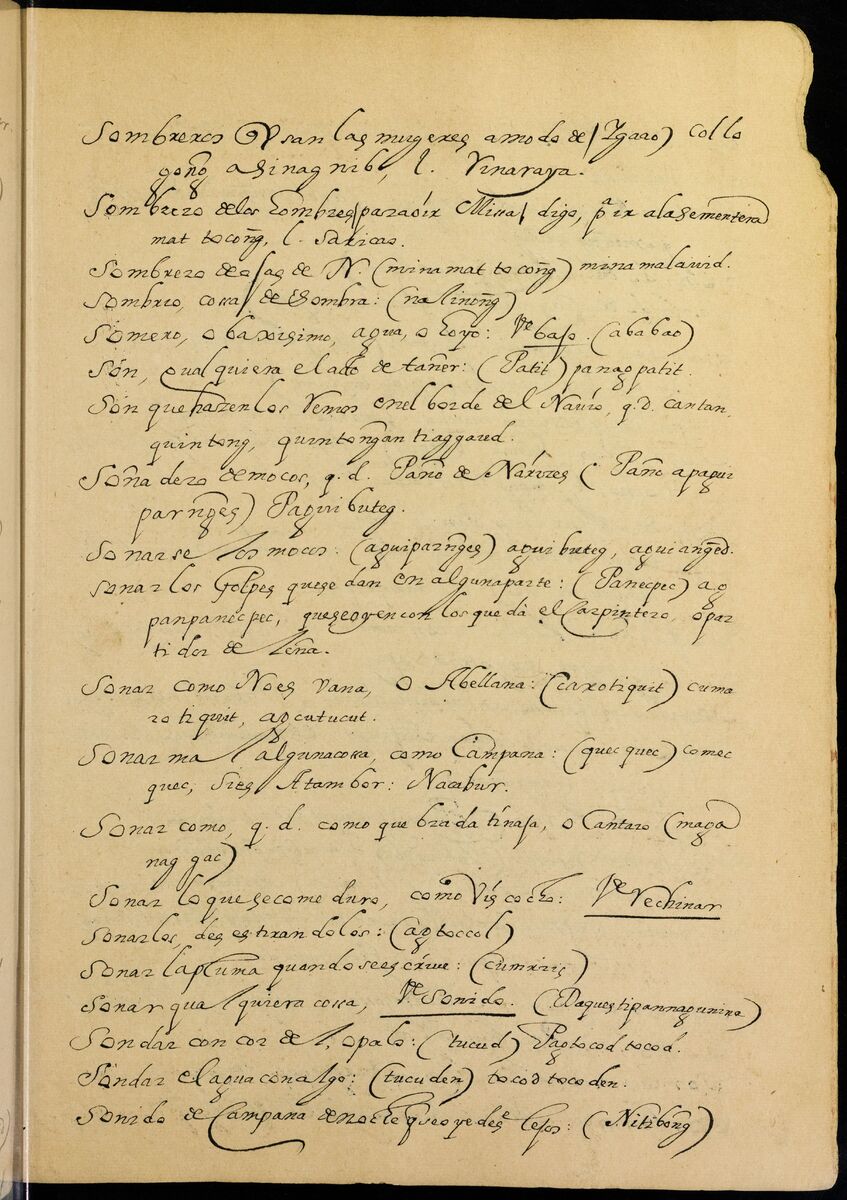 Sombreros Q Vsan las mugeres a modo de / Ygaao) collo
gong̃, a Sinagnib, l. Vinaraya.
Sombrero de los hombres / para oír Missa / digo, pª ir a la Sementera
mat tocong̃, l. Saricao.
Sombrero de ojas de N. (minamat tocong̃) minamalavid.
Sombrio, cossa / de Sombra: (nalinong̃)
Somero, o baxisimo, agua, o hoyo: Vde bajo. (ababao)
Són, qualquiera el acto de tañer: (Patit) panagpatit.
Són que hazen los remos en el borde del Navío, q.d. cantan,
quintong, quintong̃an ti aggaved.
Soñadero de mocos, q.d. Paño de Narizes (Paño a pagui
parng̃es) Paguibuteg.
Sonarse los mocos: (aguiparng̃es) aguibuteg, aguianged.
Sonar los Golpes que se dan en alguna parte: (Panecpec) ag
panpanecpec, que se oyen con los que dá el Carpintero, o par
tidor de leña.
Sonar como Noes vana, o Abellana: (carotiquit) cuma
rotiquit, agcutucut.
Sonar mal alguna cossa, como Campana: (quec quec) comec
quec, Si es Atambor: Nacabur.
Sonar como, q.d. como quebrada tínaja, o Cantaro (maga
nag gac)
Sonar lo que se come duro, como Viscocho: Vde Rechinar
Sonar los, des estirandolos: (agtoccol)
Sonar la pluma quando se escrive: (cumriis)
Sonar qualquiera cossa, Vde Sonido. (Daques ti pannagunina)
Sondar con cordel, o palo: (tucud) Pagtocod tocod.
Sondar el agua con algo: (tucuden) tocod tocoden.
Sonido de Campana de noche q̃ se oye desde lejos: (Nitibong̃)